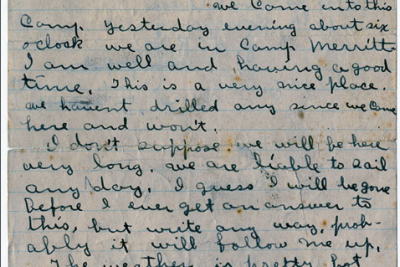 we came into this
Camp yesterday evening about six
oclock we are in Camp Merritt
I am well and having a good
time. This is a very nice place.
we havent drilled any since we came
here and won't.
I don't suppose we will be here
very long. we are liable to sail
any day. I guess I will be gone
before I ever get an answer to
this, but write any way, prob-
ably it will follow me up.
The weather is pretty hot